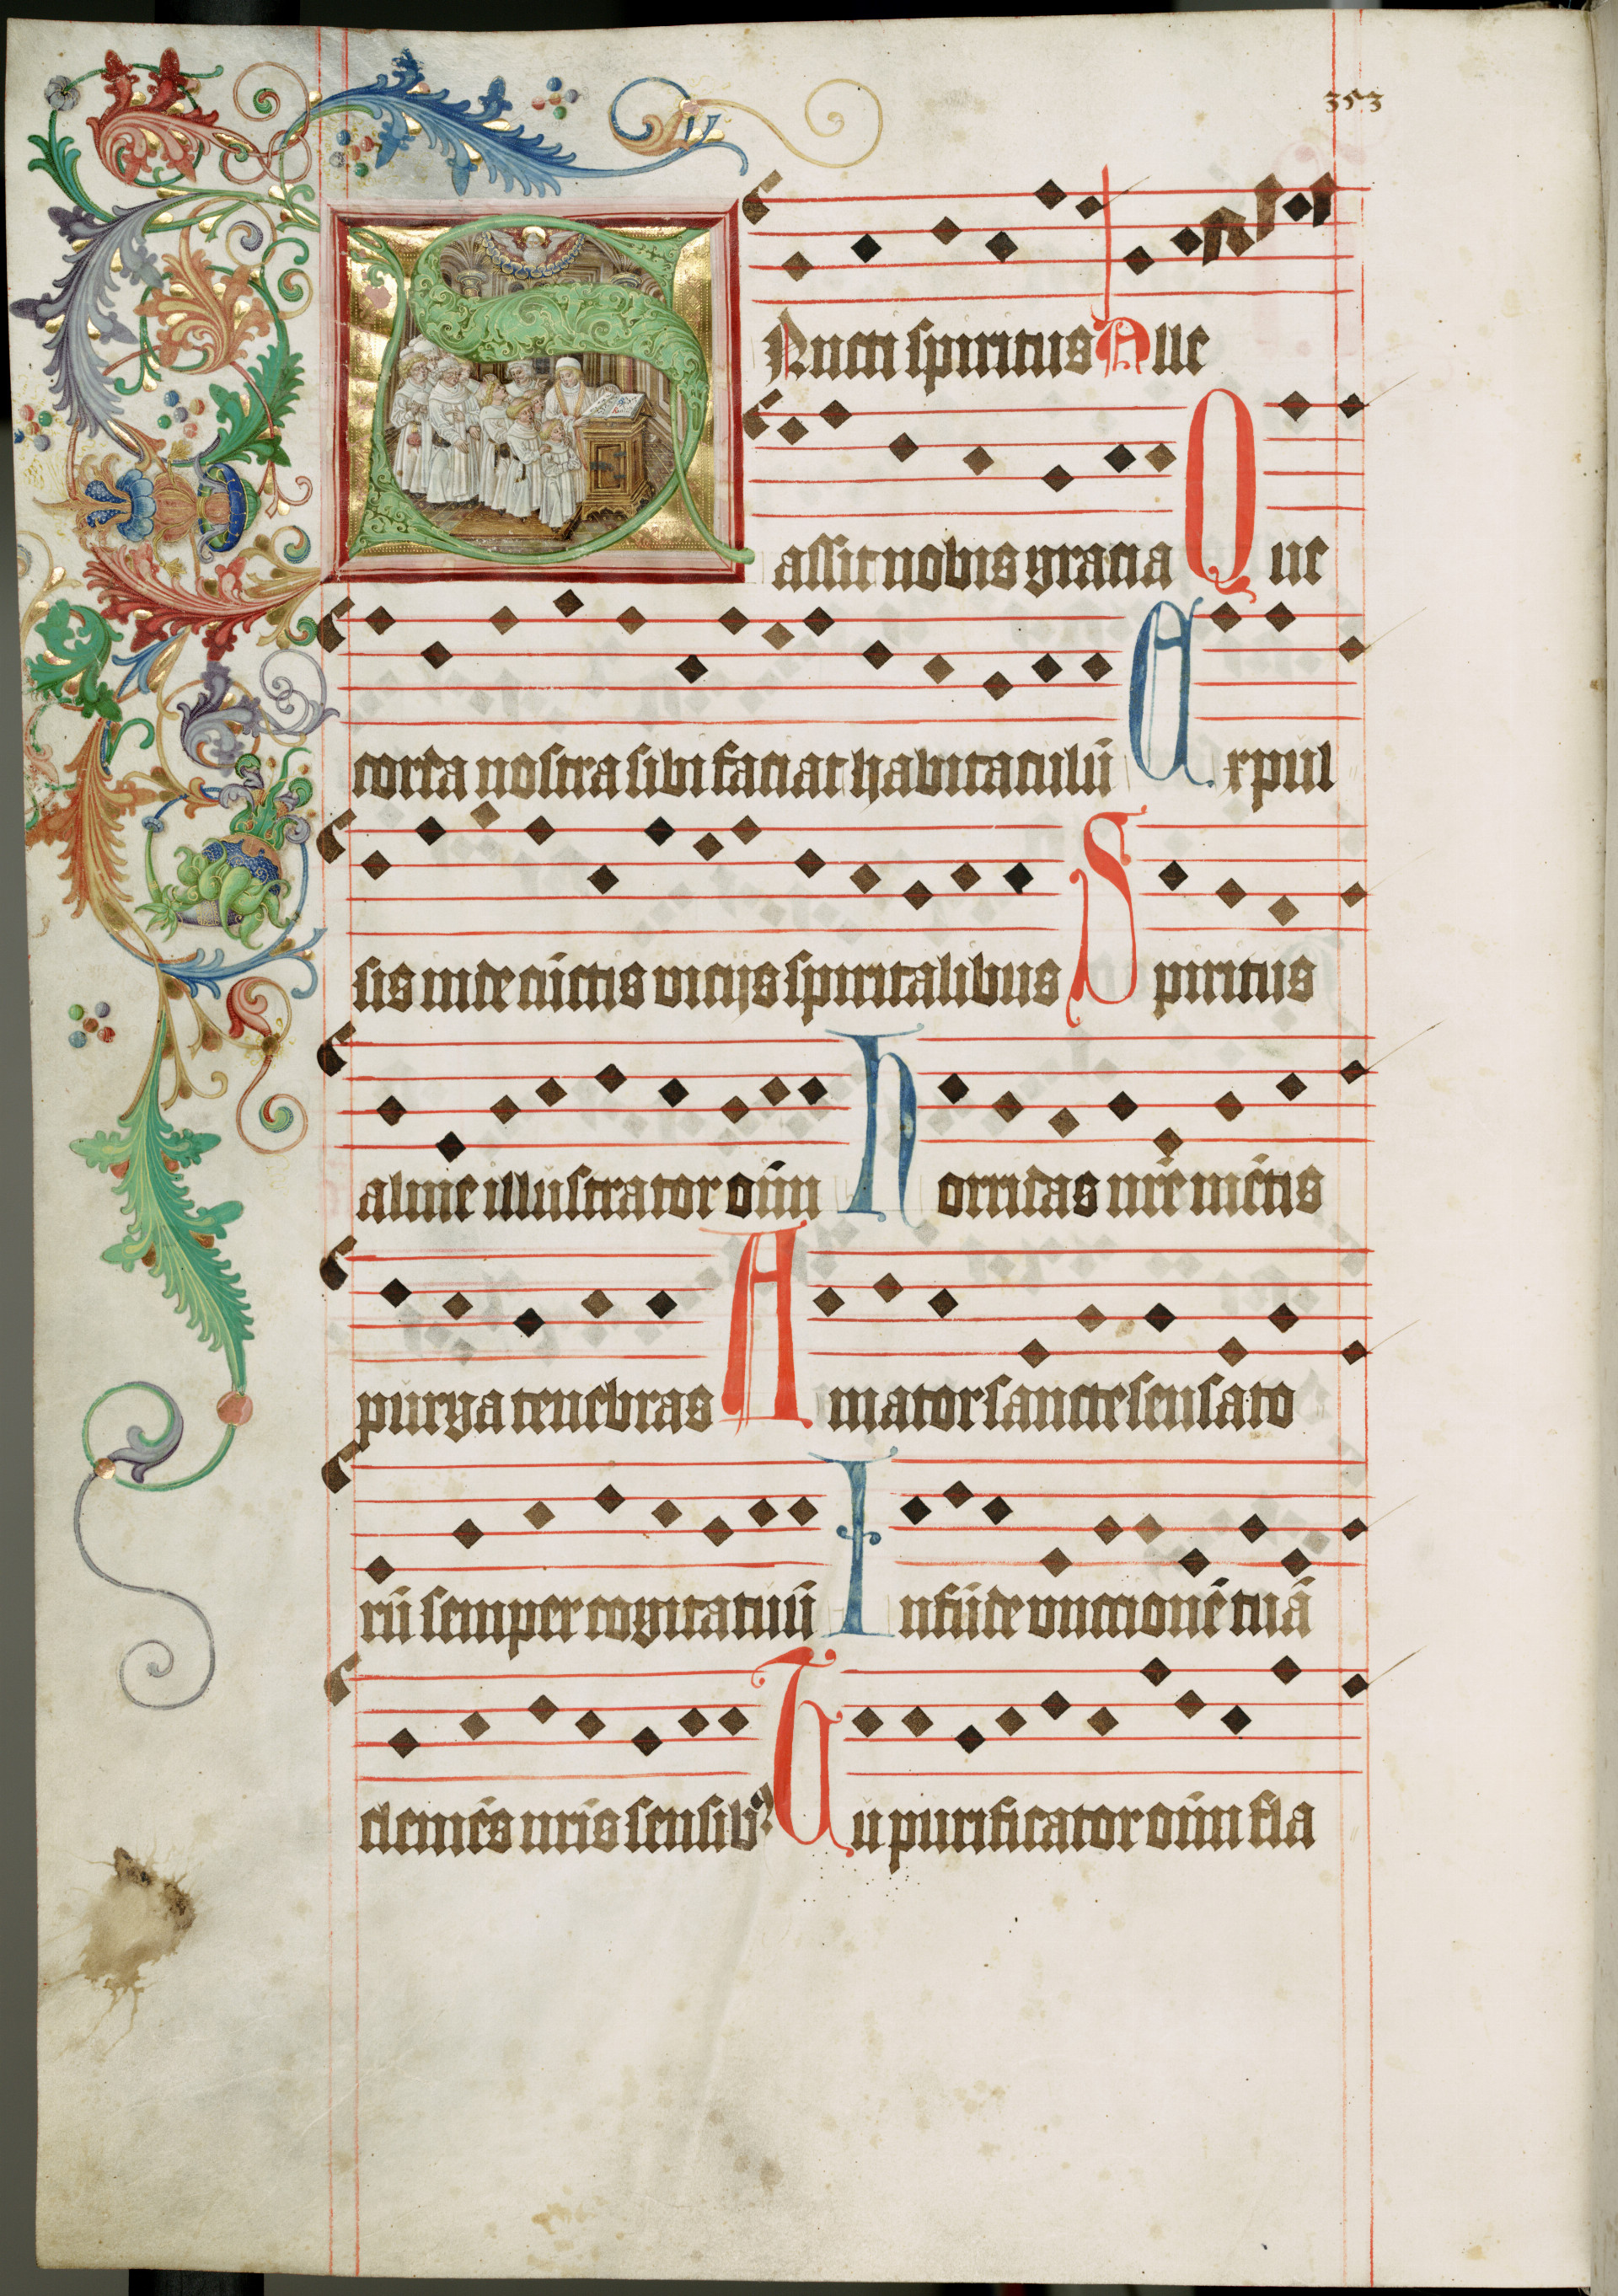 353
SAncti spiritus Alle
assit nobis gracia Que
corda nostra sibi faciat habitaculū Expul
sis inde cūctis vicijs spiritalibus Spiritus
alme illustrator oīm Horridas nr̄e mētis
purga tenebras Amator sancte sensato
rū semper cogitatuū Infūde vnccionē tuā
clemēs nr̄is sensibꝰ Tu purificator oīm fla